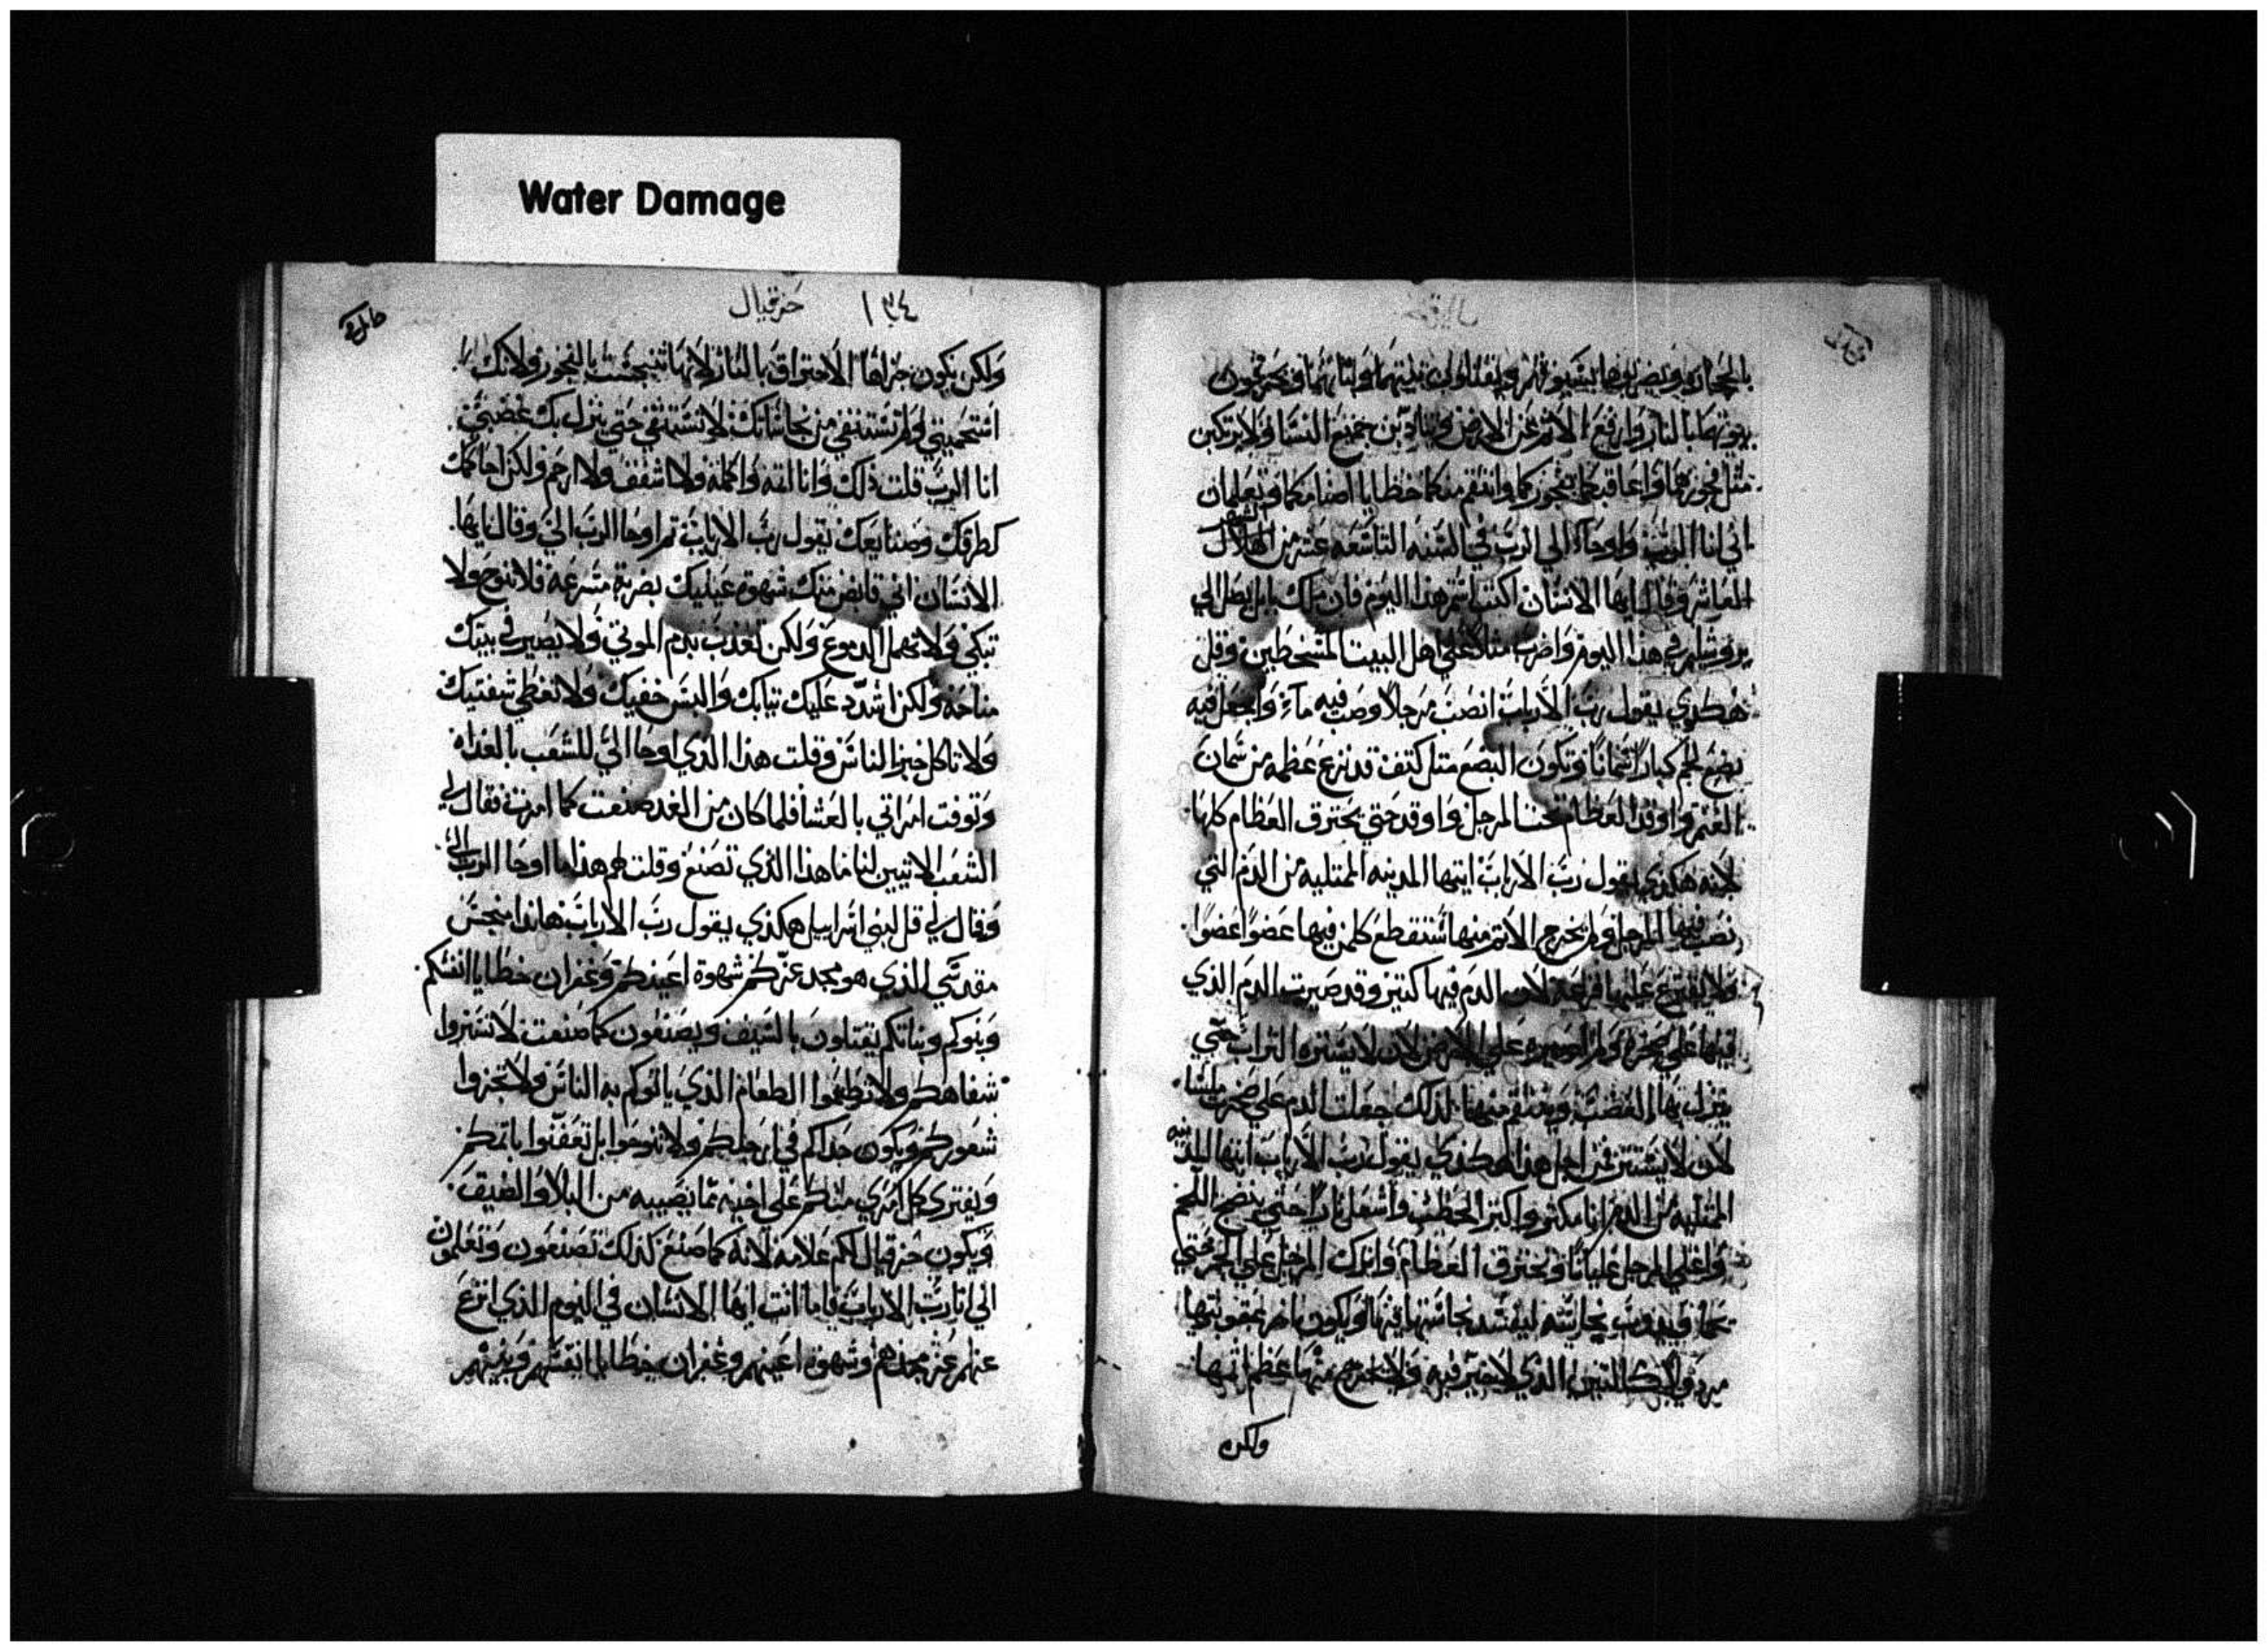 Water Damage
بالحجارة ويضربوهما بسيوفهم ويقتلون بنيهما وبناتهما ويحرقون
بيوتهما بالنار وارفع الاثم عن الارض ويتادبن جميع النسا ولا يرتكبن
مثل فجورهما واعاقبكما بفجوركما وانتقم منكما خطايا اصنامكما وتعلمان
اني انا الرب واوحا الي الرب في السنه التاسعه عشر من الهلال
العاشر وقال ايها الانسان اكتب اسم هذا اليوم فان ملك بابل يصل الي
يروشليم في هذا اليوم واضرب مثلا علي اهل البيت المسخطين وقل
هكذي يقول رب الارباب انصب مرجلا وصب فيه ماء واجعل فيه
بضع لحم كبارا سمانا وتكون البضع مثل كتف قد نزع عظمه من سمان
الغنم واوقد العظام تحت المرجل واوقد حتي يحترق العظام كلها
لانه هكذي يقول رب الارباب ايتها المدينه الممتليه من الدم التي
نصب فيها المرجل ولم يخرج الاثم منها ستقطع كلمن فيها عضوا عضوا
ولا يقترع عليها قرعة لان الدم فيها كتير وقد صيرت الدم الذي
فيها علي صخره ولم تصيره علي الارض لان لا يستره التراب حتي
ينزل بها الغضب وينتقم منها لذلك جعلت الدم علي صخرت ملسا
لان لا يستتر من اجل هذا هكذي يقول رب الارباب ايتها المدينه
الممتليه من الدم انا مكثر واكثر الحطب واشعل نارا حتي ينضج اللحم
واغلي المرجل غليانا وتحترق العظام واترك المرجل علي الجمر حتي
يحما ويدوب نحاسه ليفسد نجاستها فيها ويكون اخر عقوبتها
ولكن
١٣٤ حزقيال
ولكن يكون جزاها الاحتراق بالنار لانها تنجست بالفجور ولانك
استحميتي ولم تستنقي من نجاساتك لا تستنقي حتي ينزل بك غضبي
انا الرب قلت ذلك وانا القه واكمله ولا اشفق ولا ارحم ولكن احاكمك
كطرقك وصنايعك يقول رب الارباب ثم اوحا الرب الي وقال ايها
الانسان اني قابض منك شهوة عينيك بضربة مسرعه فلا تنوح ولا
تبكي ولا تهمل الدموع ولكن تعذب بدم الموتي ولا يصير في بيتك
مناحة ولكن اشدد عليك تيابك والبس خفيك ولا تغطي شفتيك
ولا تاكل خبز الناس وقلت هذا الذي اوحا الي للشعب بالغداه
وتوفت امراتي بالعشا فلما كان من الغد صنعت كما امرت فقال لي
الشعب الا تبين لنا ما هذا الذي تصنع وقلت لهم هذا ما اوحا الرب الي
وقال لي قل لبني اسراييل هكذي يقول رب الارباب هاندا منجس
مقدسي الذي هو مجد عزكم شهوة اعينكم وغفران خطايا انفسكم
وبنوكم وبناتكم يقتلون بالسيف ويصنعون كما صنعت لا تستروا
شفاهكم ولا تطعموا الطعام الذي ياتوكم به الناس ولا تجزوا
شعوركم ويكون حداكم في ارجلكم ولا تنوحوا بل تعفنوا باتمكم
ويفتري كل امري منكم علي اخيه مما يصيبه من البلا والضيق
ويكون حزقيال لكم علامه لانه كما صنع كذلك تصنعون وتعلمون
اني انا رب الارباب فاما انت ايها الانسان في اليوم الذي انزع
عنهم عز مجدهم وشهوة اعينهم وغفران خطايا انفسهم وبنيهم